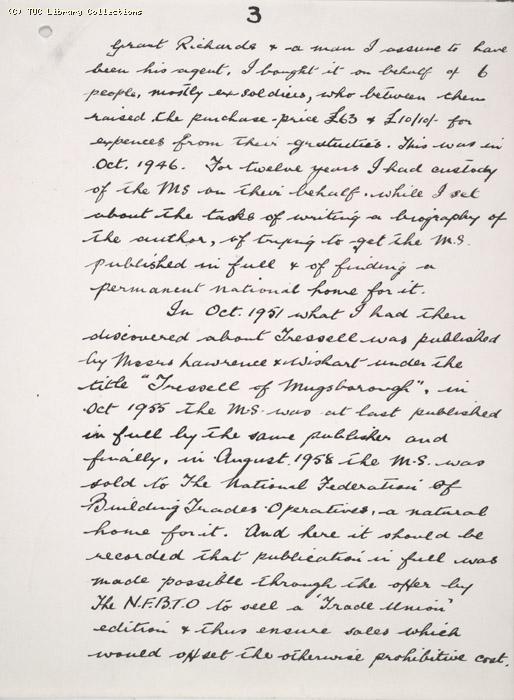 (C) TUC Library Collections
3
Grant Richards & a man I assume to have
been his agent. I bought it on behalf of 6
people, mostly ex-soldiers, who between them
raised the purchase-price £63 & £10/10/- for
expences from their gratuities. This was in
Oct. 1946. For twelve years I had custody
of the MS on their behalf. while I set
about the tasks of writing a biography of
the author, of trying to get the M.S.
published in full & of finding a
permanent national home for it.
In Oct. 1951 what I had then
discovered about Tressell was published
by Messrs Lawrence & Wishart under the
title "Tressell of Mugsborough", in
Oct 1955 the M.S. was at last published
in full by the same publisher and
finally, in August 1958 the M.S. was
sold to The National Federation of
Building Trades Operatives, a natural
home for it. And here it should be
recorded that publication in full was
made possible through the offer by
The N.F.B.T.O to sell a 'Trade Union'
edition & thus ensure sales which
would offset the otherwise prohibitive cost.